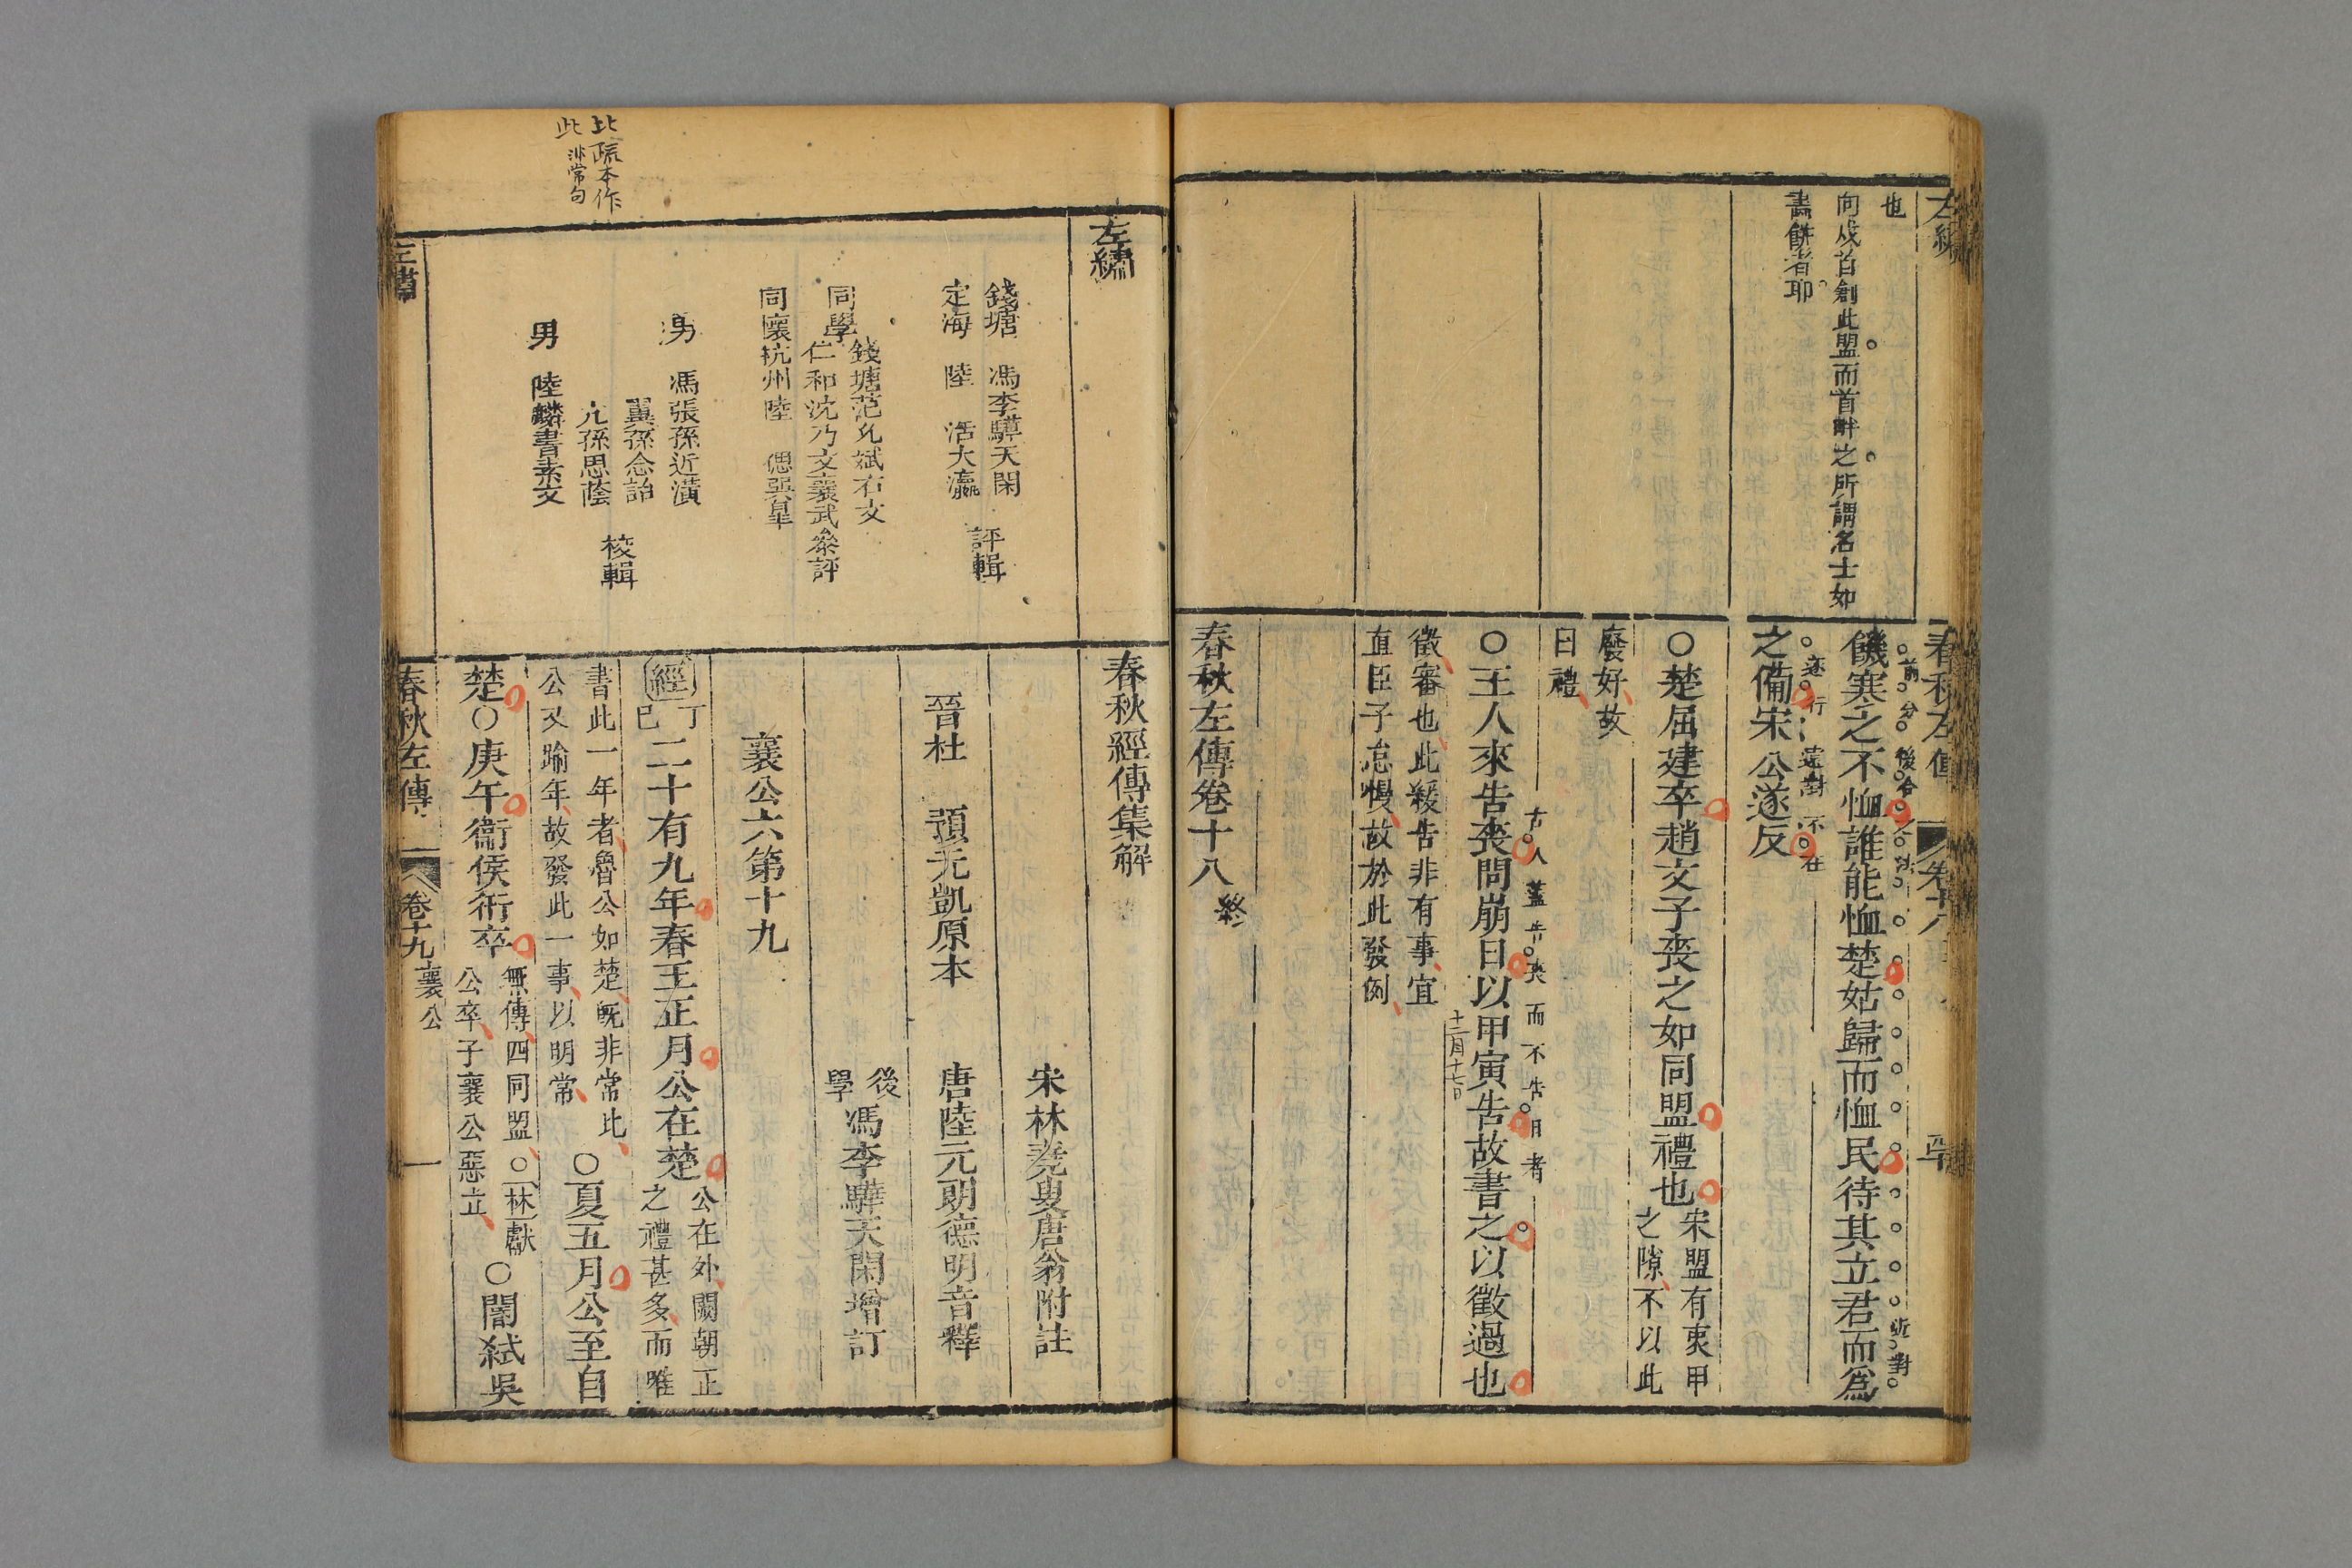 也
向戍首創此盟而首畔之所謂名士如
畫餅者耶
饑寒之不恤誰能恤楚姑歸而恤民待其立君而爲
之備宋公遂反
○楚屈建卒趙文子喪之如同盟禮也
宋盟有衷甲
之隙不以此
廢好故
曰禮
○王人來告喪問崩日以甲寅告故書之以徵過也
古人蓋告喪而不告月者
十二月十七日
徵審也此緩告非有事宜
直臣子怠慢故於此發例
春秋左傳卷十八終
左繡
錢塘 馮李驊天閑
定海 陸 浩大瀛
評輯
同學
錢塘范允斌右文
仁和沈乃文襄武叅評
同懷杭州陸 偲巽皐
男 馮張孫近潢
翼孫念詒
亢孫思蔭
男 陸麟書素文
校輯
此疏本作
此非常句
春秋經傳集解
宋林堯叟唐翁附註
晉杜 預元凱原本
唐陸元朗德明音釋
後學馮李驊天閑增訂
襄公六第十九
經
丁巳
二十有九年春王正月公在楚
公在外闕朝正
之禮甚多而唯
書此一年者魯公如楚旣非常此
公又踰年故發此一事以明常
○夏五月公至自
楚○庚午衞侯衎卒
無傳四同盟○林獻
公卒子襄公惡立
○閽弒吳
春秋左傳
卷十九
襄公
一